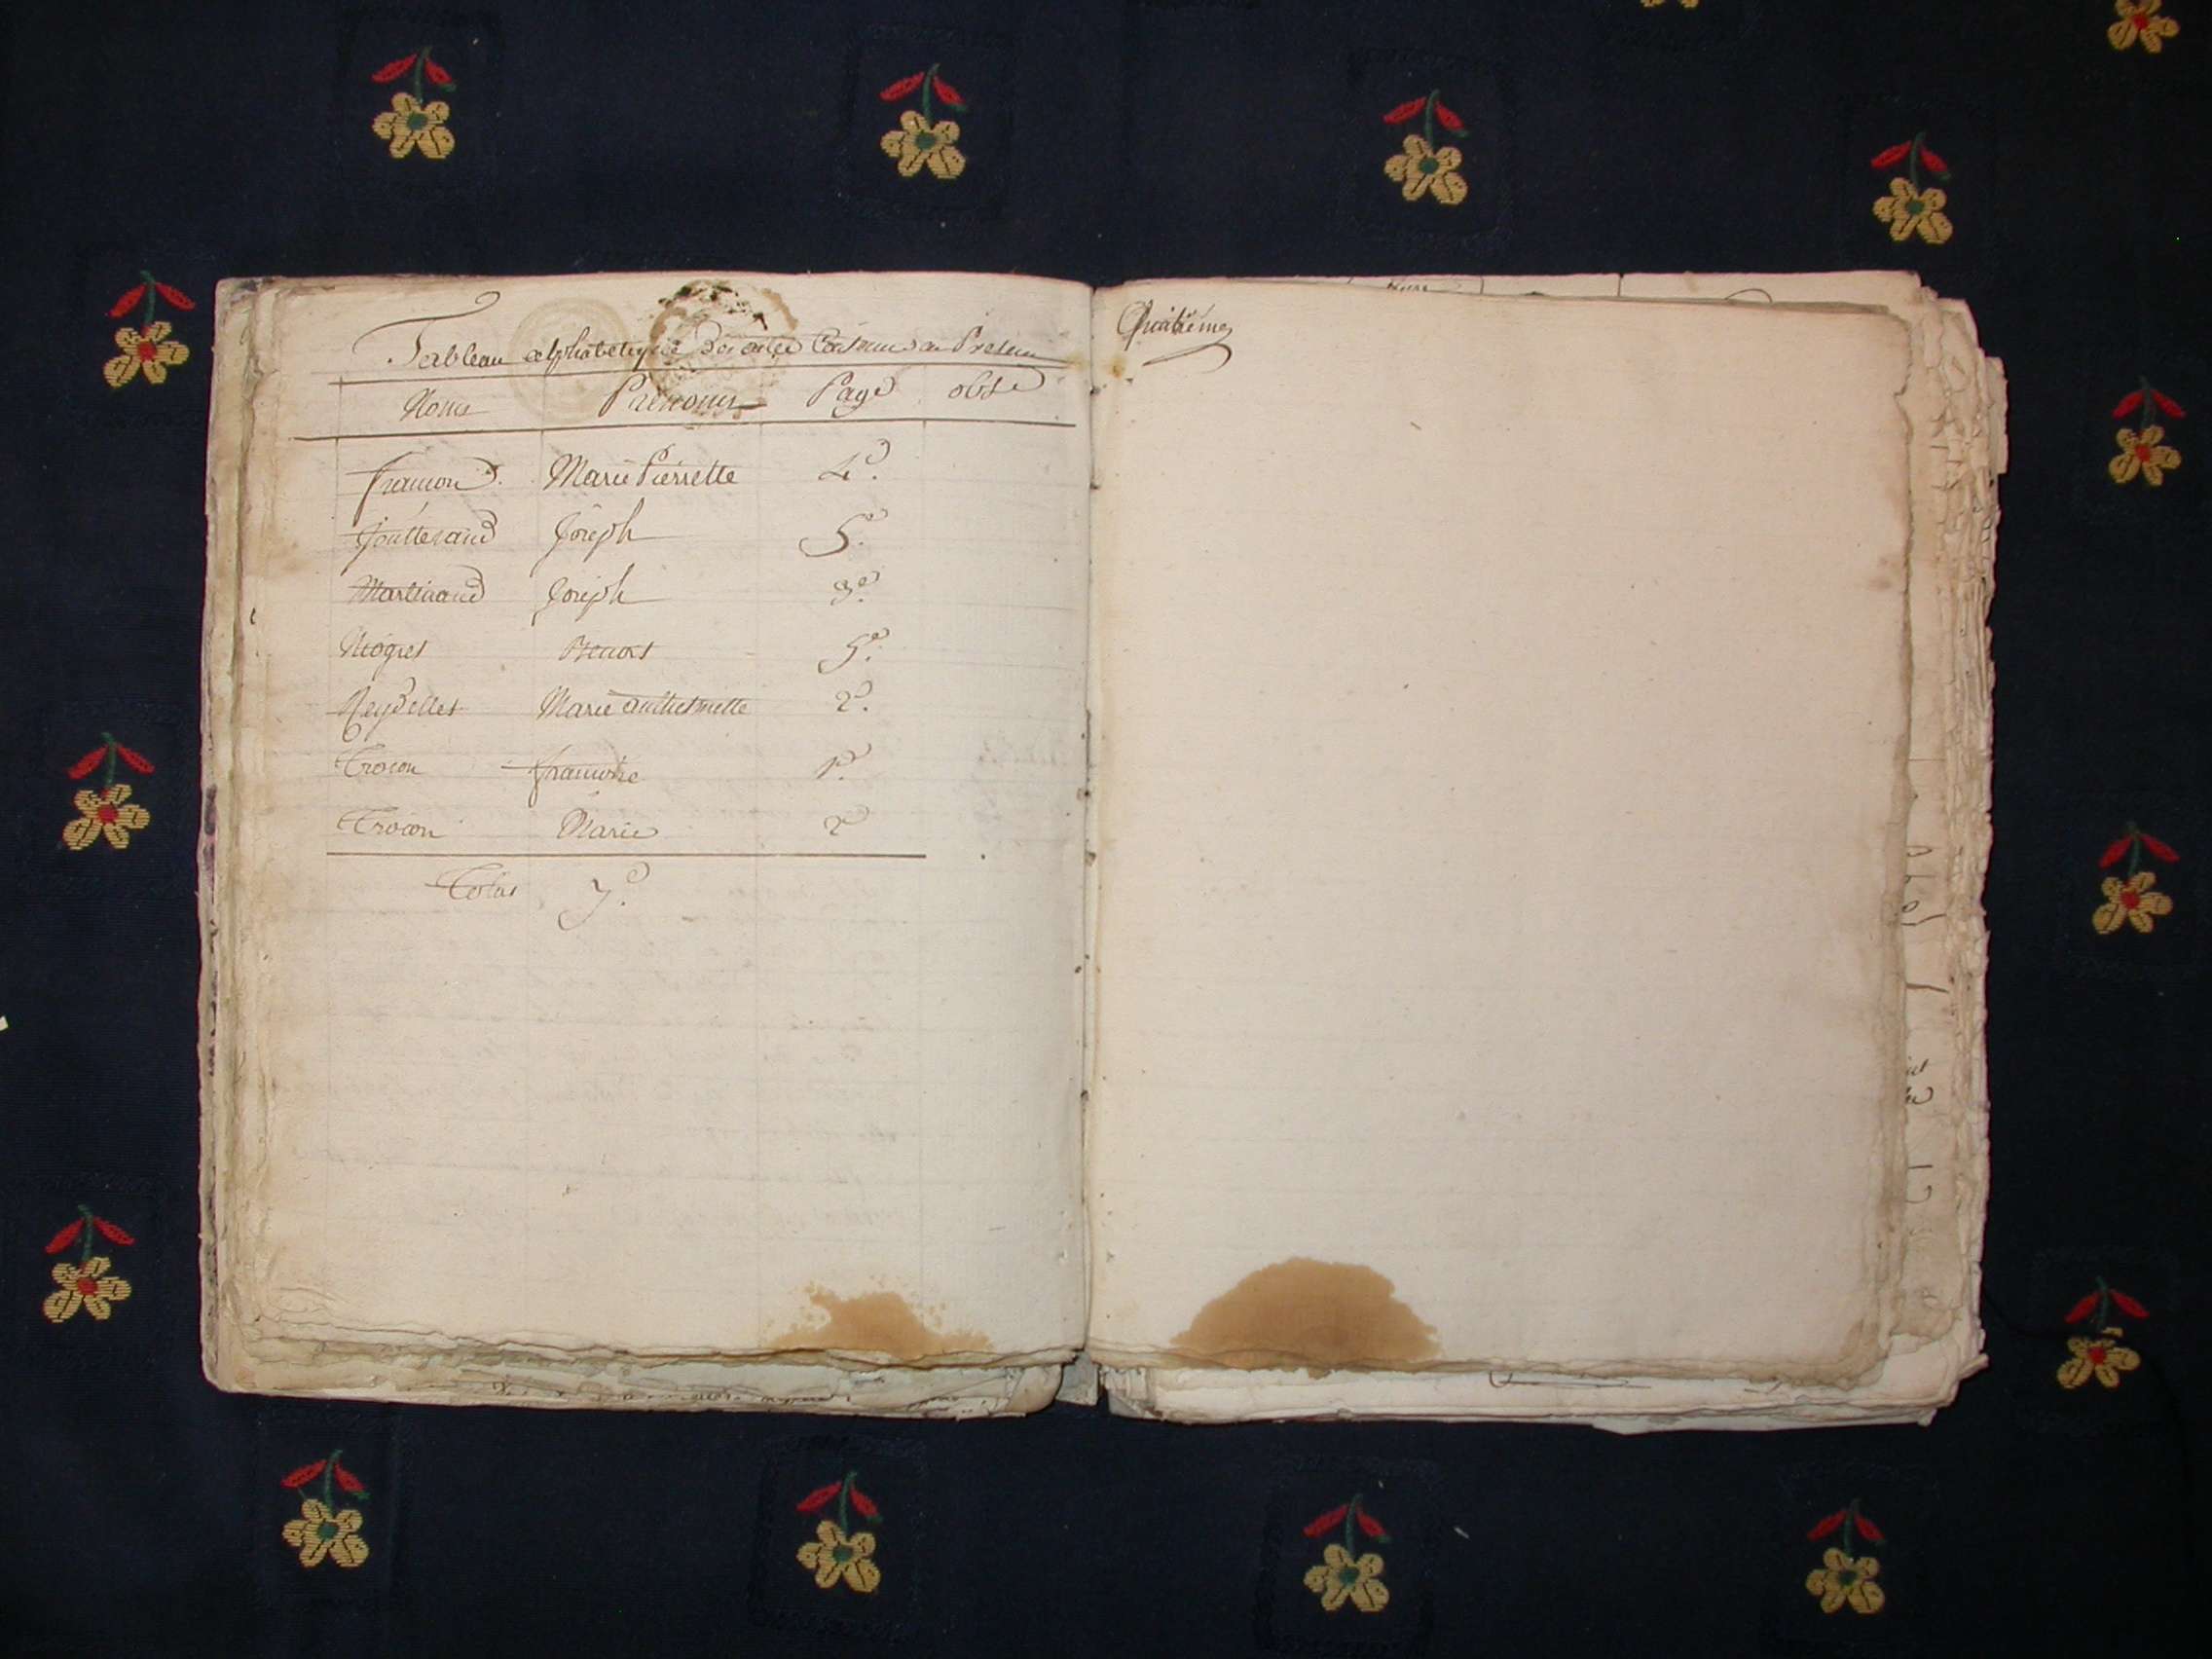 Tableau alphabetique des actes Contenus au Present
Noms Prénoms Page obs
françon Marie Pierrette 4e.
Joutterand Joseph 5e.
Martinand Joseph 3e.
Niogret 5e.
Reydellet Marie 2e.
Crocon françoise 1e.
Crocon Marie 2e
Total 7e.
Quatième